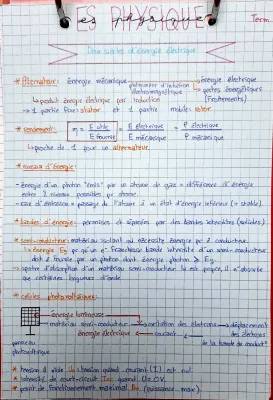 ES PHYSIQUE
es physique
Term
Deux sortes d'énergie électrique
* Alternateur: énergie mécanique → énergie électrique
phénomène d'induction électromagnétique
pertes énergétiques (frottements)
↳ produit énergie électrique par induction
→ 1 partie fixe: stator et 1 partie mobile: rotor
* rendement: η = E utile / E fournie = E électrique / E mécanique = P électrique / P mécanique
↳ proche de 1 pour un alternateur.
* niveaux d'énergie:
- énergie d'un photon "émis" par un atome de gaz = différence d'énergie
entre 2 niveaux possibles
- d'émission = passage de l'atome à un état d'énergie inférieur (+ stable).
* bandes d'énergie: permises et séparées par des bandes interdites (solides)
* semi-conducteur: matériau isolant où nécessite énergie pr ê conducteur.
↳ énergie Eg
doit ê fournie par un photon dont énergie photon ≥ Eg.
→ spectre d'absorption d'un matériau semi-conducteur lui est propre, il n'absorbe
que certaines longueurs d'onde.
* cellules photovoltaïques:
énergie lumineuse
matériau semi-conducteur → excitation des électrons → déplacement
des électrons
énergie électrique
courant
de la bande de conduct°
panneau
photovoltaïque
* tension à vide
tension quand courant (I) est nul
* intensité de court-circuit Icc quand U = 0V.
* point de fonctionnement maximal
(puissance max)